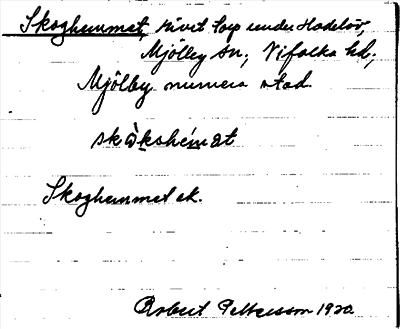 Skoghemmet, rivet torp under Hadelöv,
Mjölby sn; Vifolka hd;
Mjölby numera stad.
skò̀kshém at
Skoghemmet ek.
Robert Pettersson 1920.